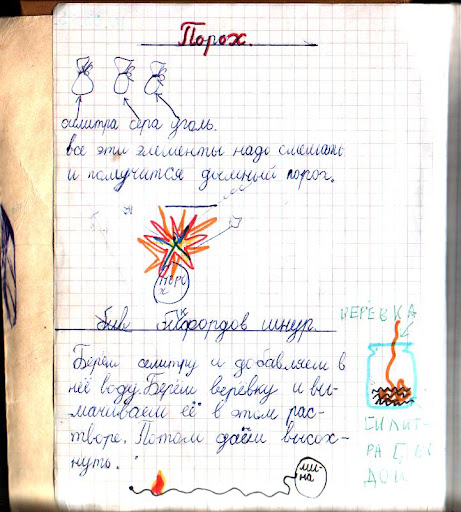 Порох.
селитра сера уголь.
все эти элементы надо смешать
и получится дымный порог.
поро
х
Бикфордов шнур
ВЕРЁВКА
Берём селитру и добавляем в
неё воду. Берём верёвку и вы-
мачиваем её в этом рас-
творе. Потом даём высох-
нуть.
СИЛИТ-
РА С ВО
ДОЙ
ми-
на